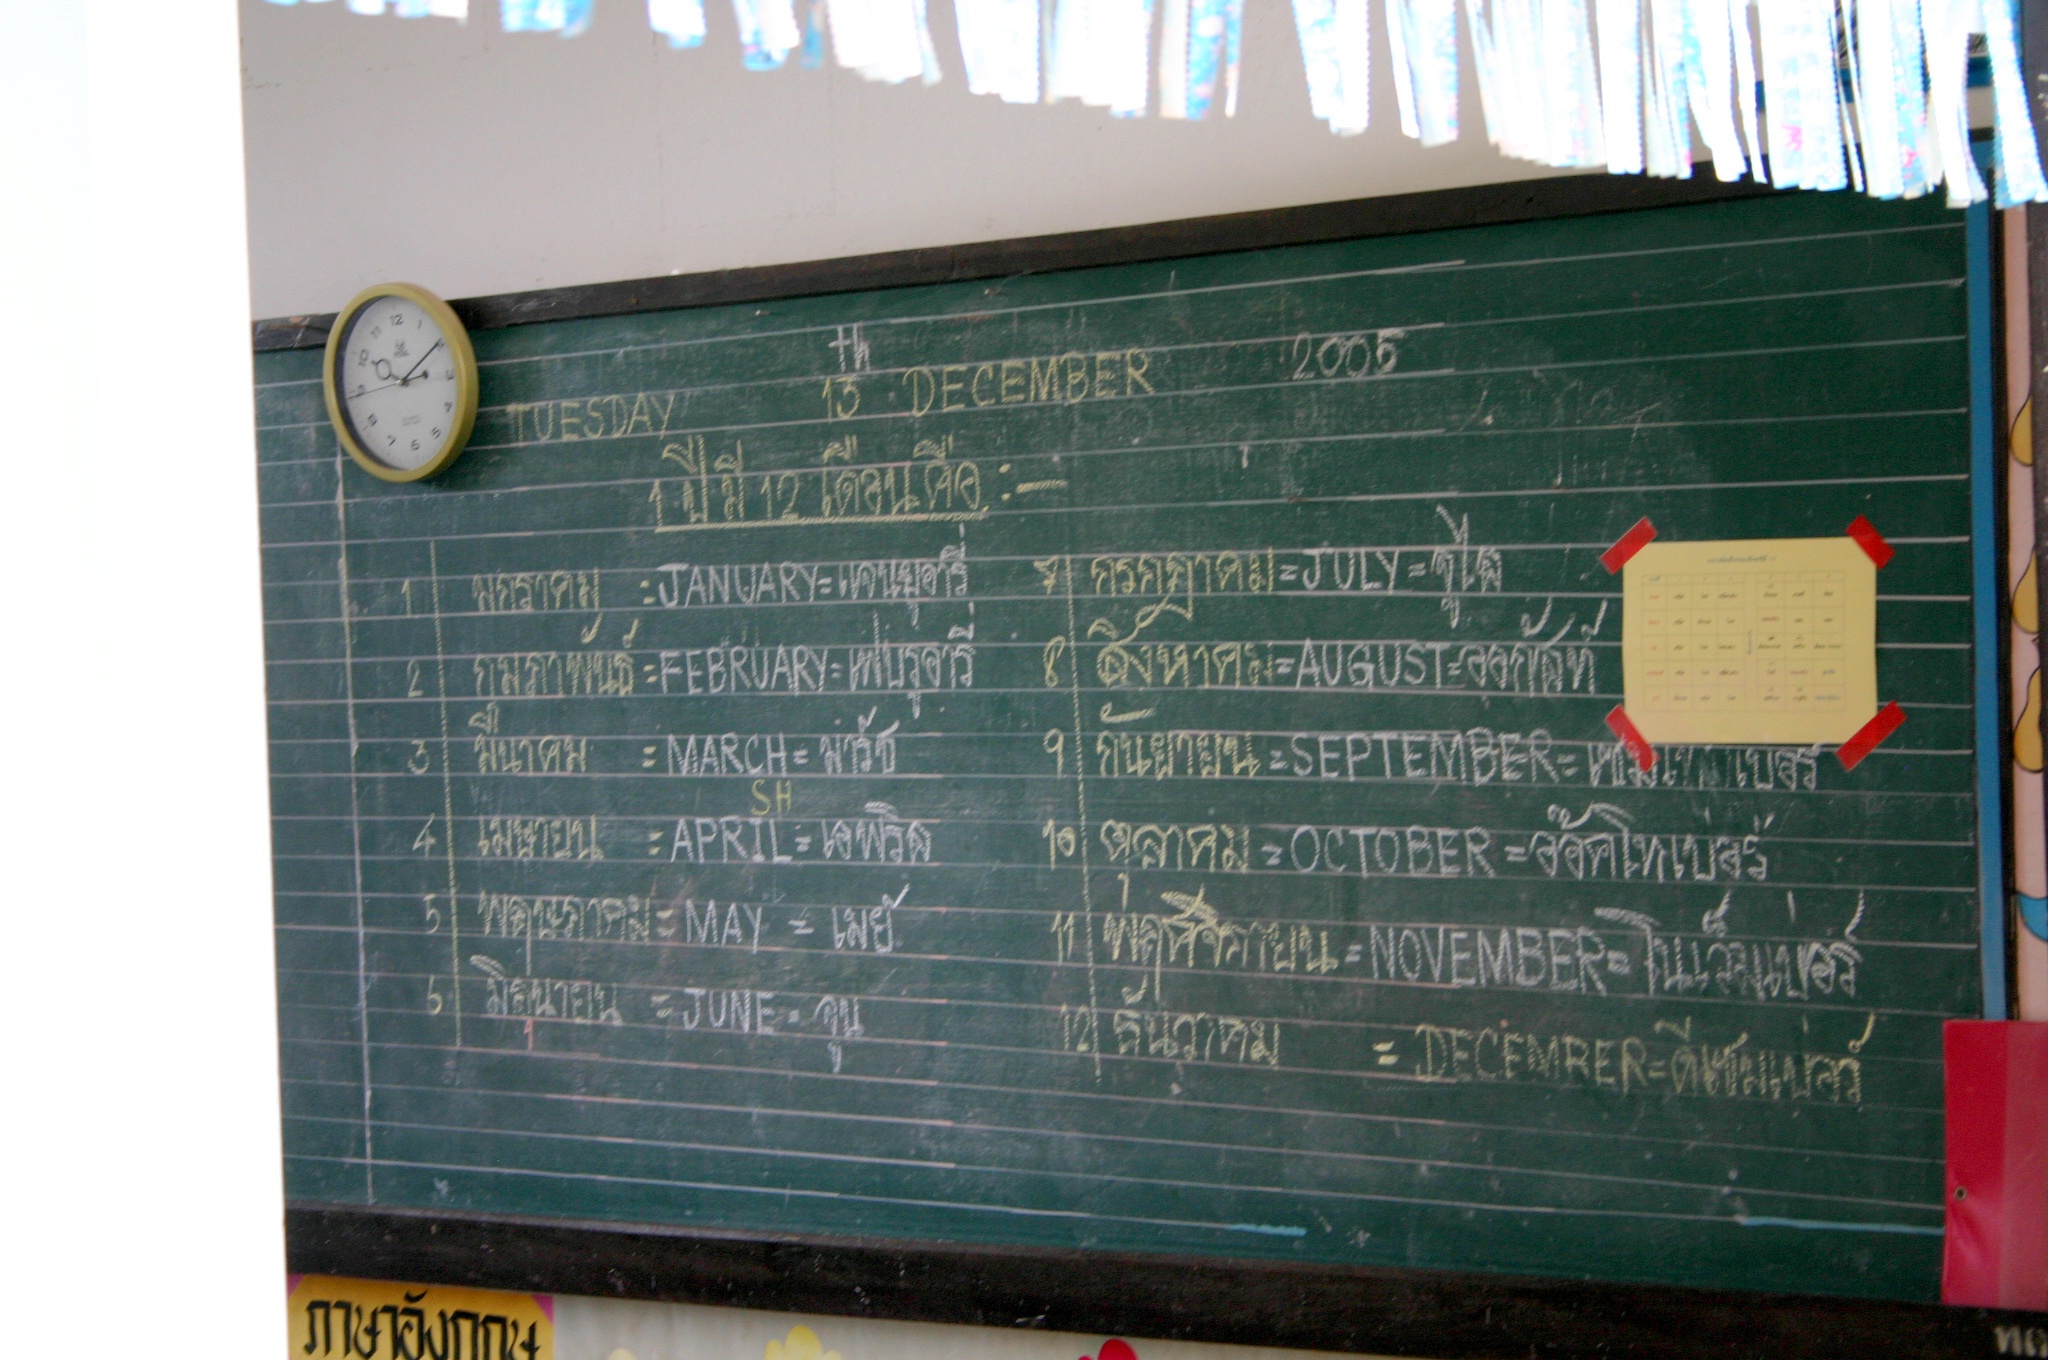 th
TUESDAY 13 DECEMBER 2005
1 ปี มี 12 เดือน คือ :-
1 มกราคม = JANUARY = เจนยุอารี่
2 กุมภาพันธ์ = FEBRUARY = เฟบรุอารี่
3 มีนาคม = MARCH = มาร์ช
SH
4 เมษายน = APRIL = เอพริล
5 พฤษภาคม = MAY = เมย์
6 มิถุนายน = JUNE - จูน
7 กรกฎาคม = JULY = จูไล
8 สิงหาคม = AUGUST = ออกัสท์
9 กันยายน = SEPTEMBER =
10 ตุลาคม = OCTOBER = อ๊อคโทเบ่อร์
11 พฤศจิกายน = NOVEMBER = โนเว็มเบ่อร์
12 ธันวาคม = DECEMBER = ดีเซมเบ่อร์
ภาษาอังกฤษ